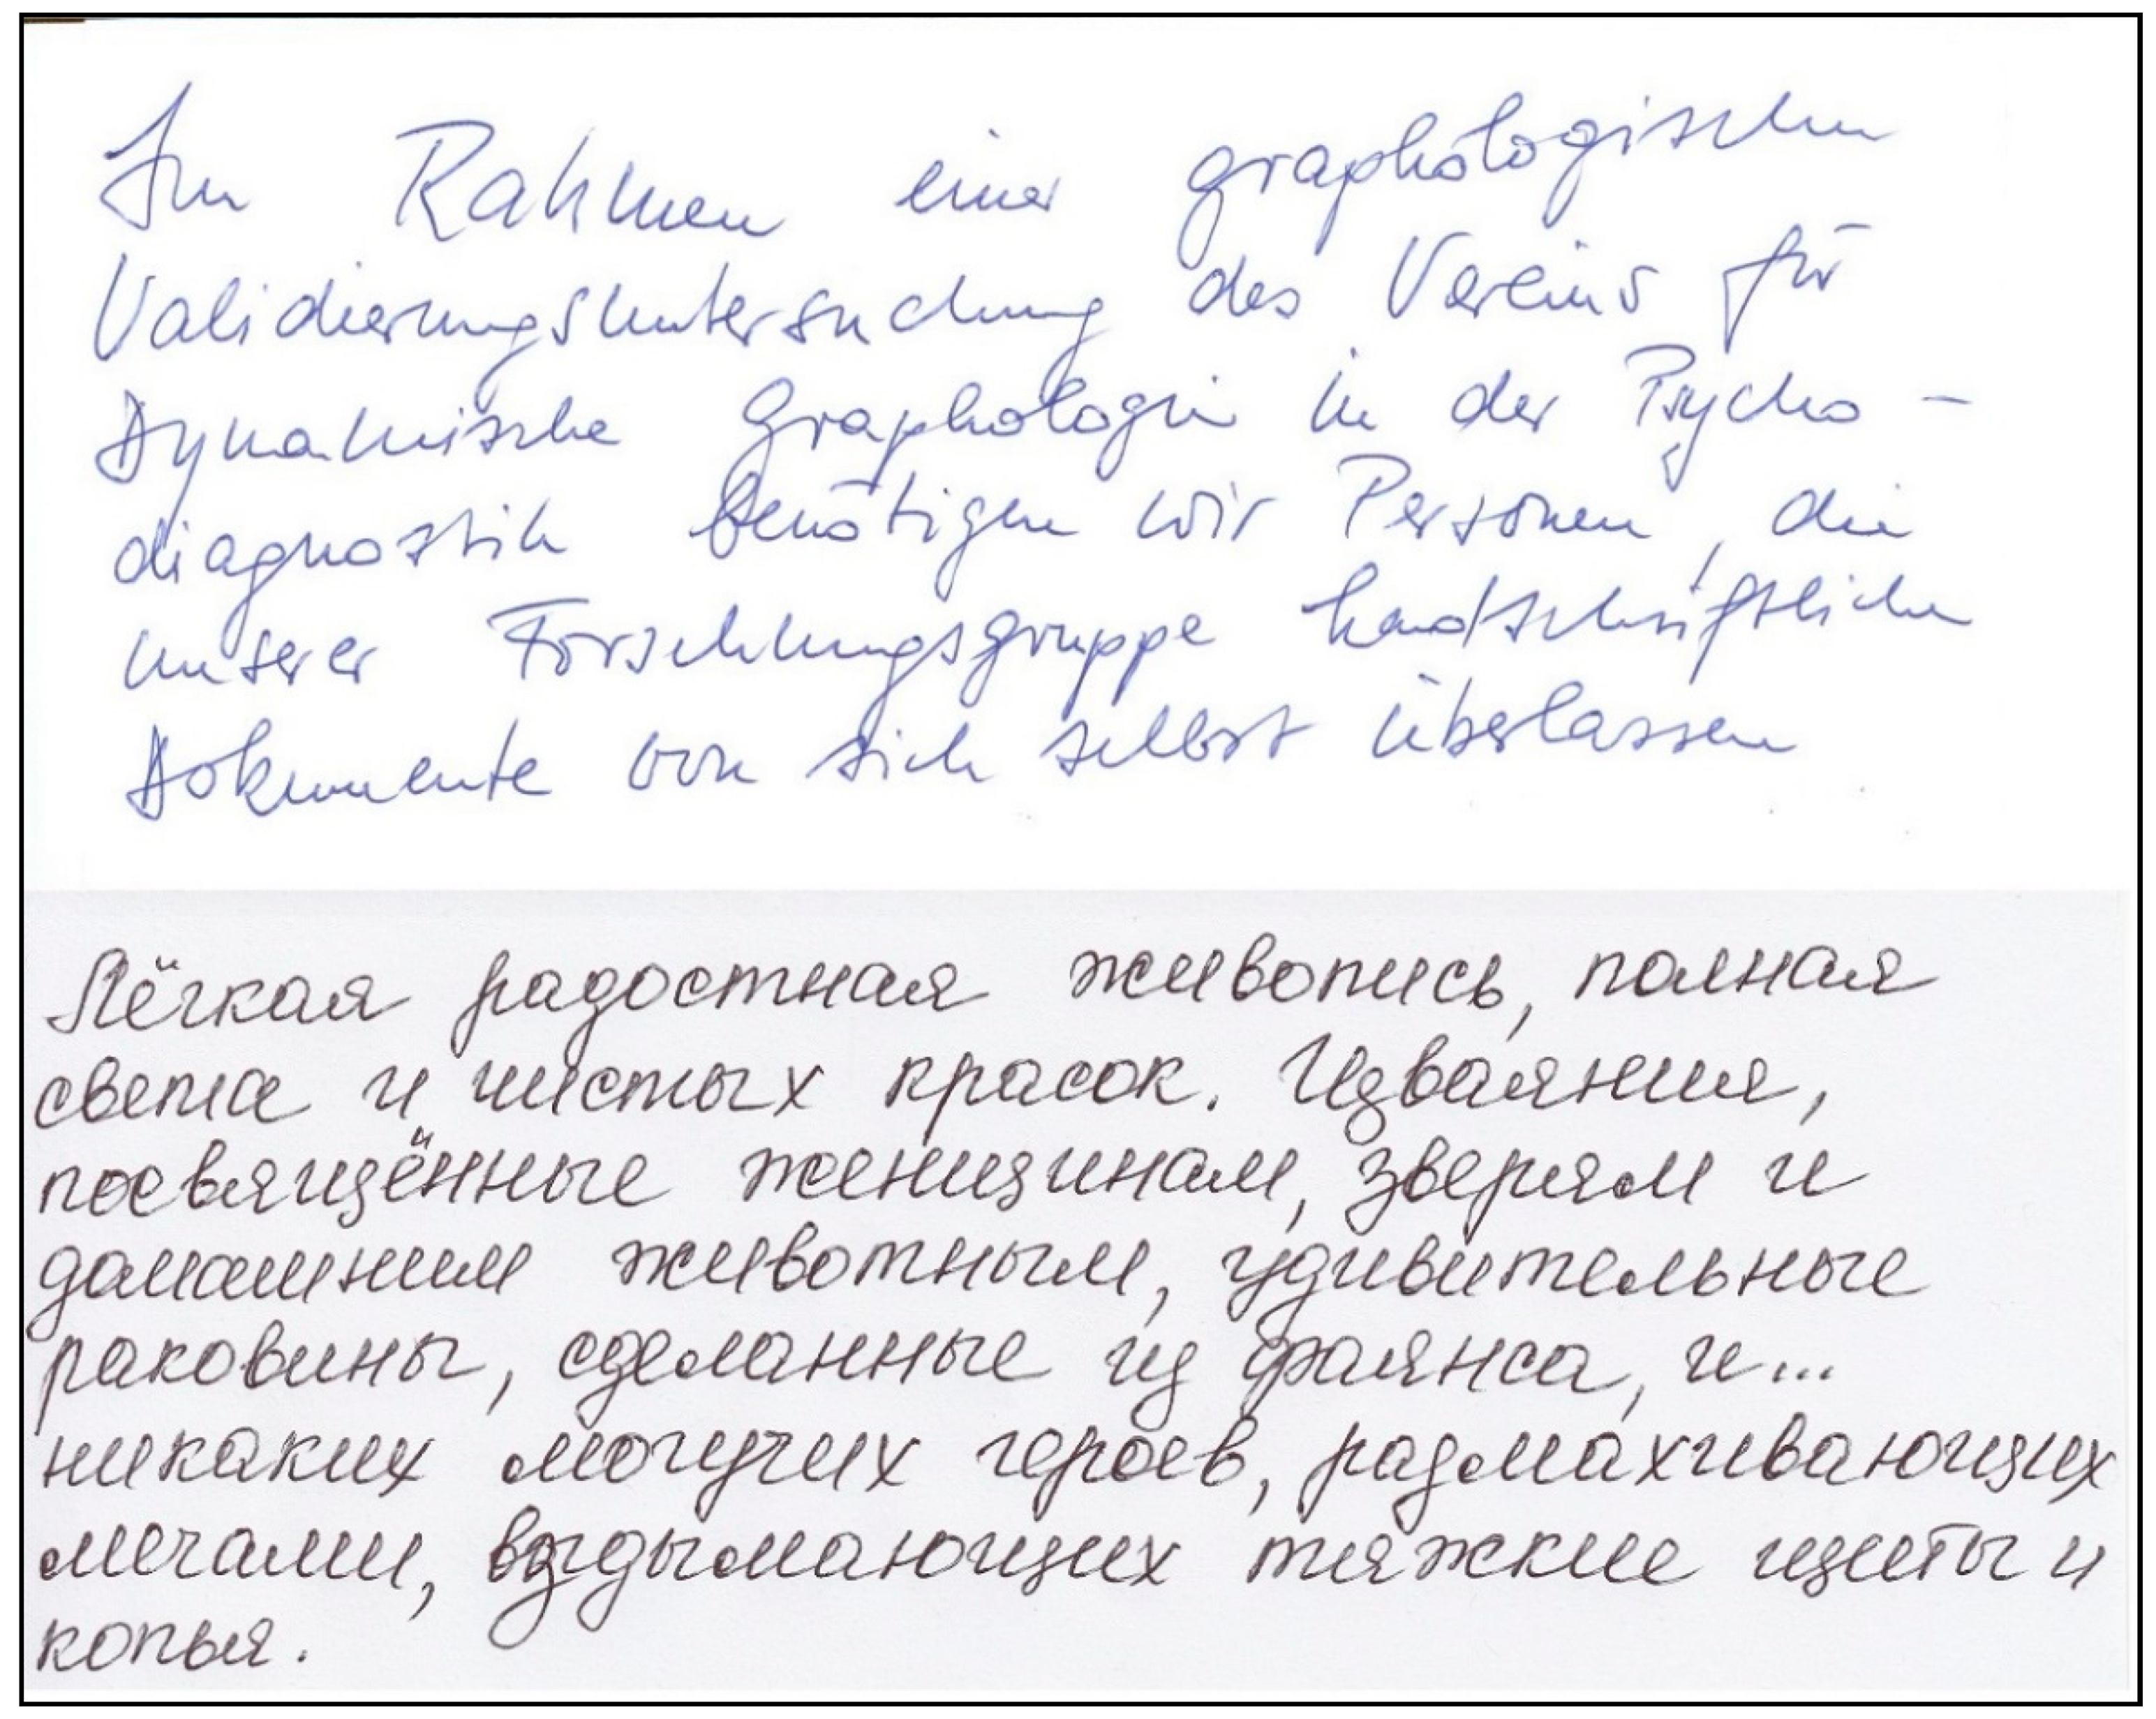 Im Rahmen einer graphologischen
Validierungsuntersuchung des Vereins für
Dynamische Graphologie in der Psycho-
diagnostik benötigen wir Personen, die
unserer Forschungsgruppe handschriftliche
Dokumente von sich selbst überlassen
Лёгкая радостная живопись, полная
света и чистых красок. Изваяния,
посвящённые женщинам, зверям и
домашним животным, удивительные
раковины, сделанные из фаянса, и...
никаких могучих героев, размахивающих
мечами, вздымающих тяжкие щиты и
копья.